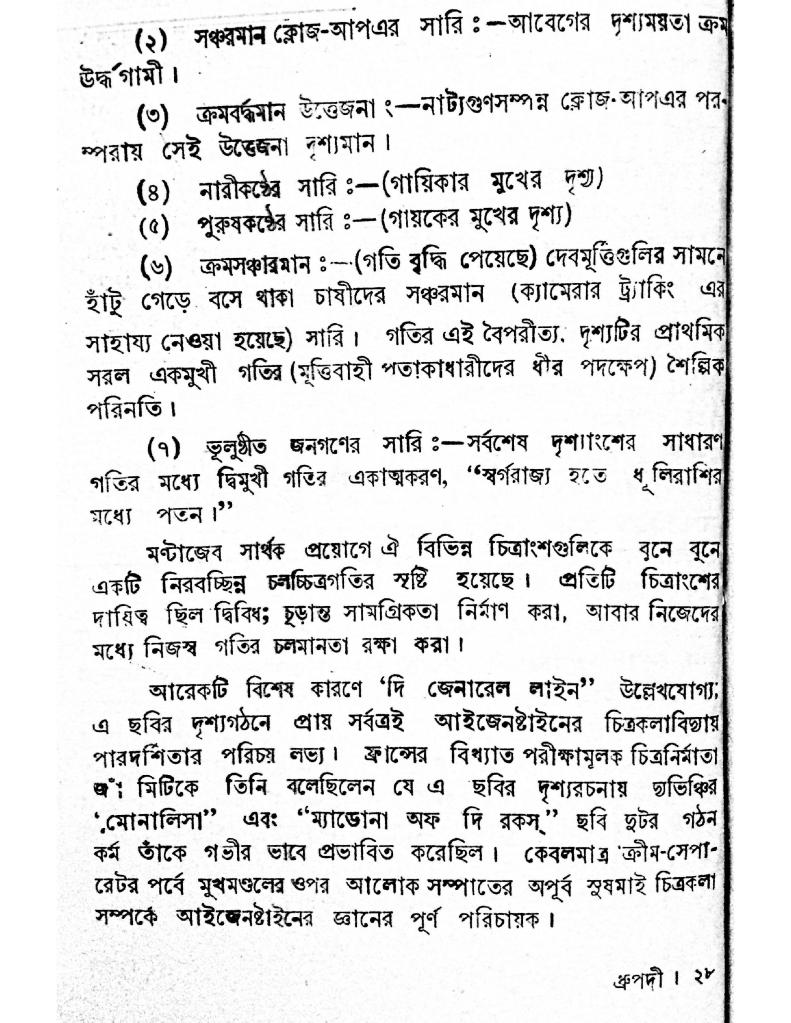 (২) সঞ্চরমান ক্লোজ-আপএর সারি :—আবেগের দৃশ্যময়তা ক্রম
ঊর্দ্ধগামী।
(৩) ক্রমবর্দ্ধমান উত্তেজনা :—নাট্যগুণসম্পন্ন ক্লোজ-আপএর পর-
ম্পরায় সেই উত্তেজনা দৃশ্যমান।
(৪) নারীকণ্ঠের সারি :—(গায়িকার মুখের দৃশ্য)
(৫) পুরুষকণ্ঠের সারি :—(গায়কের মুখের দৃশ্য)
(৬) ক্রমসঞ্চারমান :—(গতি বৃদ্ধি পেয়েছে) দেবমূর্ত্তিগুলির সামনে
হাঁটু গেড়ে বসে থাকা চাষীদের সঞ্চরমান (ক্যামেরার ট্র্যাকিং এর
সাহায্য নেওয়া হয়েছে) সারি। গতির এই বৈপরীত্য, দৃশ্যটির প্রাথমিক
সরল একমুখী গতির (মূত্তিবাহী পতাকাধারীদের ধীর পদক্ষেপ) শৈল্পিক
পরিনতি।
(৭) ভূলুণ্ঠীত জনগণের সারি :—সর্বশেষ দৃশ্যাংশের সাধারণ
গতির মধ্যে দ্বিমুখী গতির একাত্মকরণ, “স্বর্গরাজ্য হতে ধূলিরাশির
মধ্যে পতন।”
মণ্টাজেব সার্থক প্রয়োগে ঐ বিভিন্ন চিত্রাংশগুলিকে বুনে বুনে
একটি নিরবচ্ছিন্ন চলচ্চিত্রগতির সৃষ্টি হয়েছে। প্রতিটি চিত্রাংশের
দায়িত্ব ছিল দ্বিবিধ; চূড়ান্ত সামগ্রিকতা নির্মাণ করা, আবার নিজেদের
মধ্যে নিজস্ব গতির চলমানতা রক্ষা করা।
আরেকটি বিশেষ কারণে ‘দি জেনারেল লাইন” উল্লেখযোগ্য;
এ ছবির দৃশ্যগঠনে প্রায় সর্বত্রই আইজেনষ্টাইনের চিত্রকলাবিদ্যায়
পারদর্শিতার পরিচয় লভ্য। ফ্রান্সের বিখ্যাত পরীক্ষামুলক চিত্রনির্মাতা
জাঁ মিটিকে তিনি বলেছিলেন যে এ ছবির দৃশ্যরচনায় দ্যভিঞ্চির
‘মোনালিসা” এবং “ম্যাডোনা অফ দি রকস্” ছবি দুটর গঠন
কর্ম তাঁকে গভীর ভাবে প্রভাবিত করেছিল। কেবলমাত্র ক্রীম-সেপা-
রেটর পর্বে মুখমণ্ডলের ওপর আলোক সম্পাতের অপূর্ব সুষমাই চিত্রকলা
সম্পর্কে আইজেনষ্টাইনের জ্ঞানের পূর্ণ পরিচায়ক।
ধ্রুপদী। ২৮